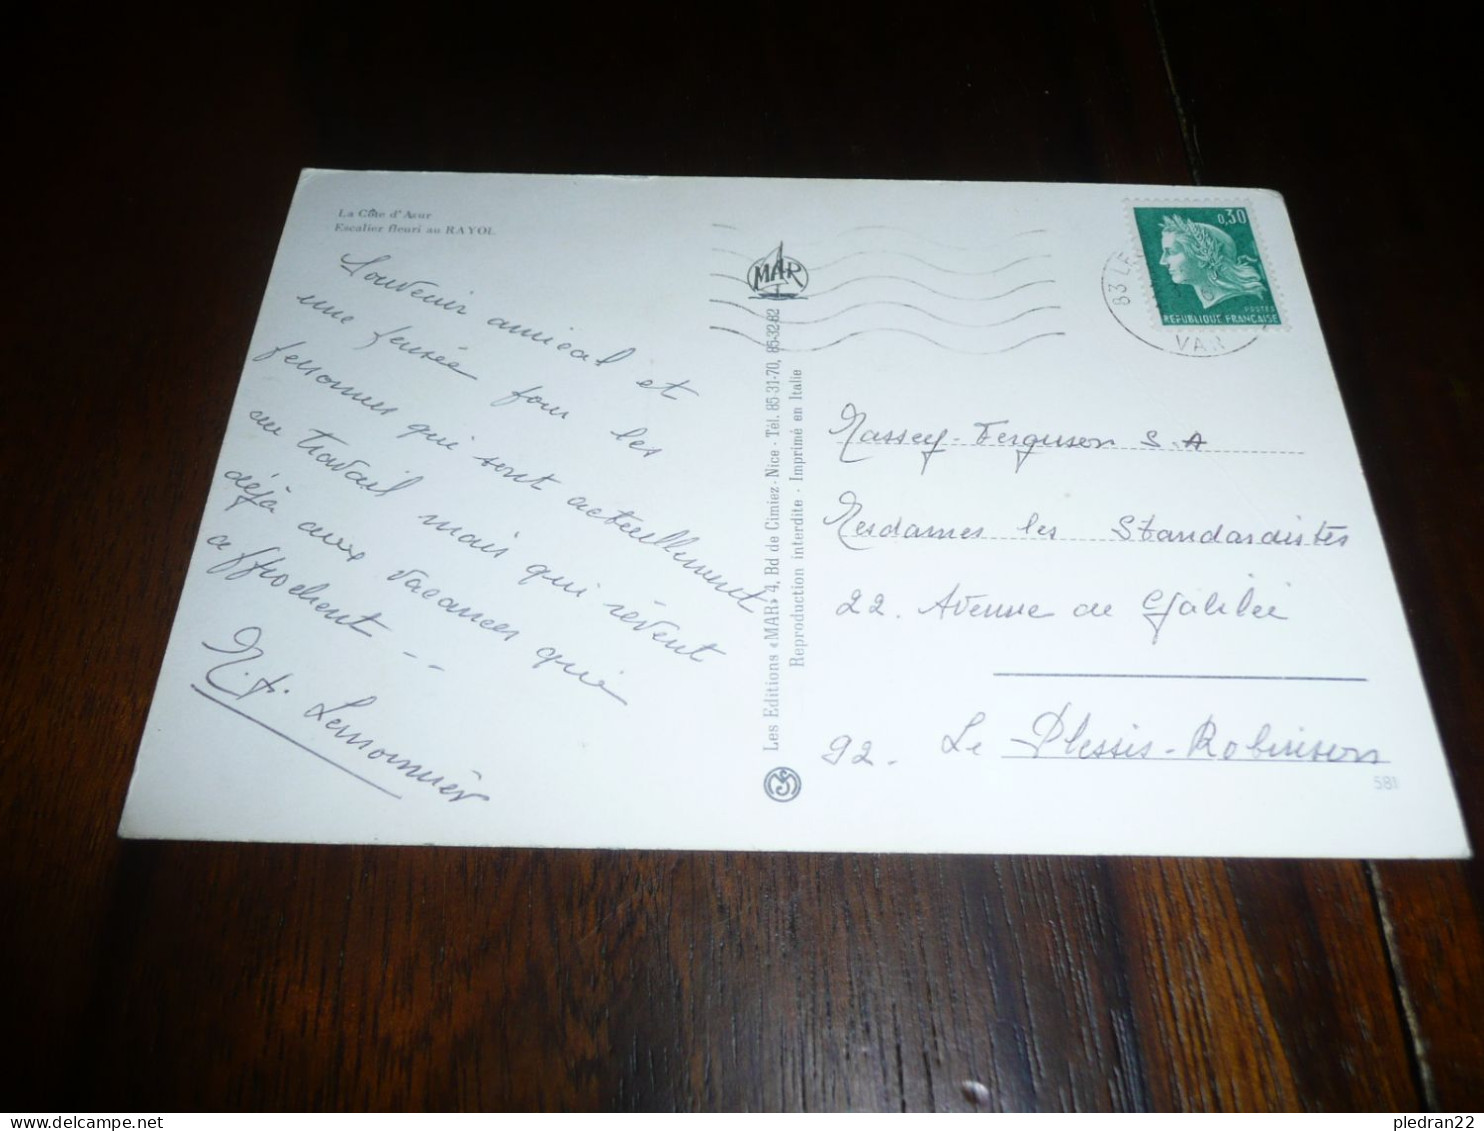 La Côte d'Azur
Escalier fleuri au RAYOL
Souvenir amical et
une pensée pour les
personnes qui sont actuellement
au travail mais qui rêvent
déjà aux vacances qui
approchent --
Lemonnier
MAR
Les Editions «MAR» 4, Bd de Cimiez - Nice - Tél. 85-31-70, 85-32-82
Reproduction interdite - Imprimé en Italie
0,30
POSTES
REPUBLIQUE FRANCAISE
83 LE
VAR
Massey-Ferguson S.A
Mesdames les Standardistes
22. Avenue de Galilée
92. Le Plessis-Robinson
581
pledran22